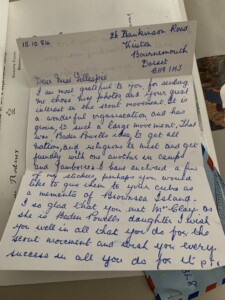 18.10.84
26 Frankinson Road,
Winton
Bournemouth
Dorset
BH9 1HJ
Dear Miss Gillespie
I am most grateful to you for sending
me those key photos and your great
interest in the scout movement. It is
a wonderful organisation and has
grown to such a large movement. That
was Baden Powells idea to get all
nations and religions to meet and get
friendly with one another in camps
and Jamborees I have enclosed a few
of my stickers, perhaps you would
like to give them to your cubs as
a momento of Brownsea Island.
I so glad that you met Mrs Clay as
she is Baden Powells daughter I wish
you well in all that you do for the
scout movement and wish you every
success in all you do for it